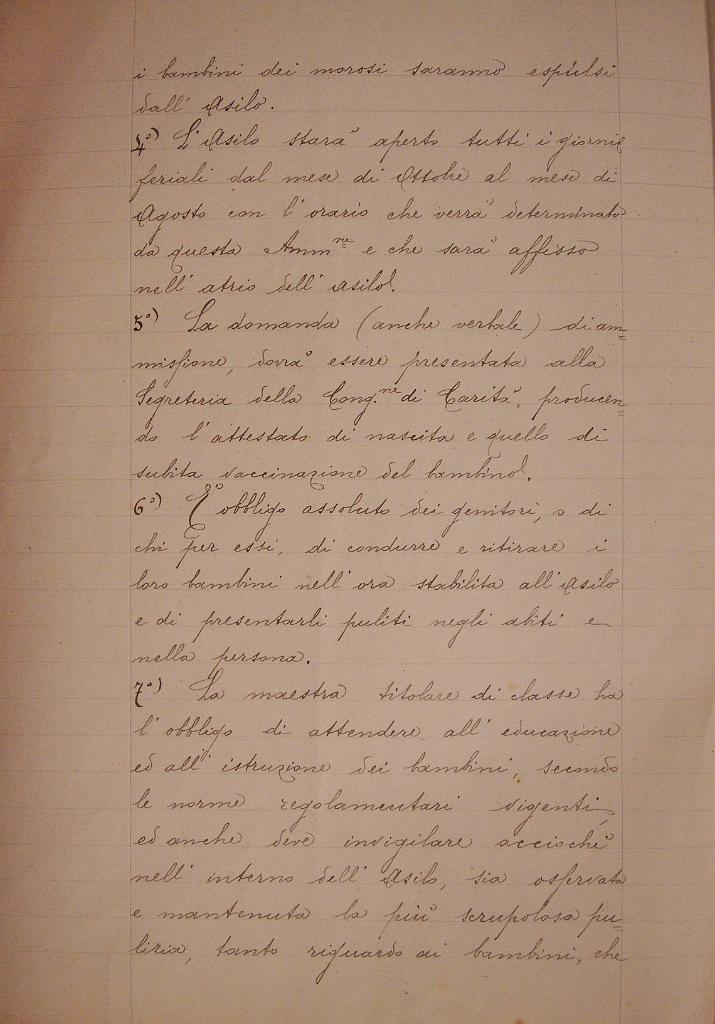 i bambini dei morosi saranno espulsi
dall' Asilo.
4°) L'Asilo stara' aperto tutti i giorni
feriali dal mese di Ottobre al mese di
Agosto con l'orario che verra' determinato
da questa Amm.ne e che sara' affisso
nell' atrio dell' asilo.
5°) La domanda (anche verbale) di am=
missione, dovra' essere presentata alla
Segreteria della Cong.ne di Carita', producen=
do l'attestato di nascita e quello di
subita vaccinazione del bambino.
6°) E' obbligo assoluto dei genitori, o di
chi per essi, di condurre e ritirare i
loro bambini nell' ora stabilita all' Asilo
e di presentarli puliti negli abiti e
nella persona.
7°) La maestra titolare di classe ha
l'obbligo di attendere all' educazione
ed all' istruzione dei bambini, secondo
le norme regolamentari vigenti,
ed anche deve invigilare accioche'
nell' interno dell' Asilo, sia osservata
e mantenuta la piu' scrupolosa pu=
lizia, tanto riguardo ai bambini, che